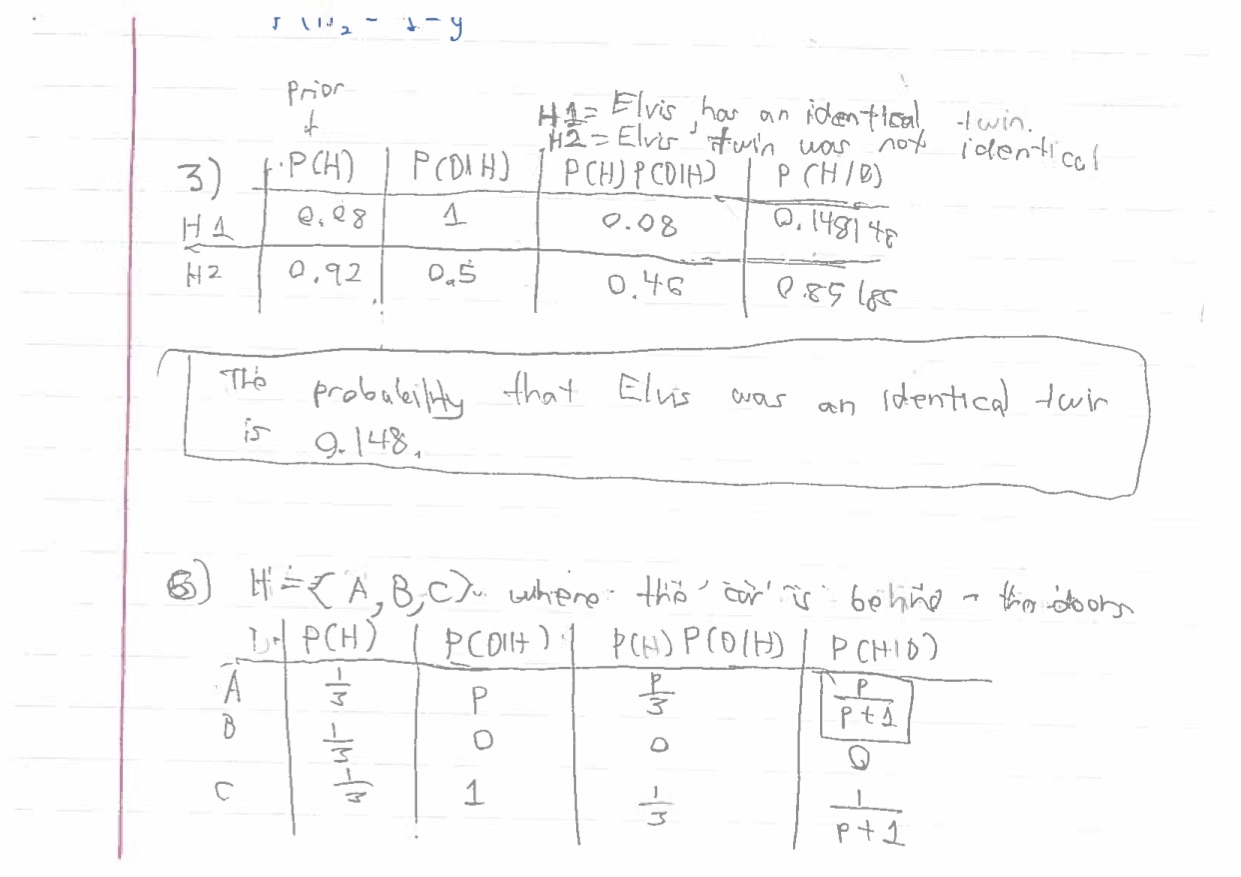 - y
Prior
H1= Elvis has an identical twin.
H2 = Elvis' twin was not identical
3) P(H) P(D|H) P(H) P(D|H) P(H/D)
H1 0.08 1 0.08 0.148148
H2 0.92 0.5 0.46 0.85185
The probability that Elvis was an identical twin
is 0.148.
H = { A, B, C } where the car is behind the doors
P(H) P(D|H) P(H) P(D|H) P(H|D)
A 1/3 P P/3 P/(P+1)
B 1/3 0 0 0
C 1/3 1 1/3 1/(P+1)